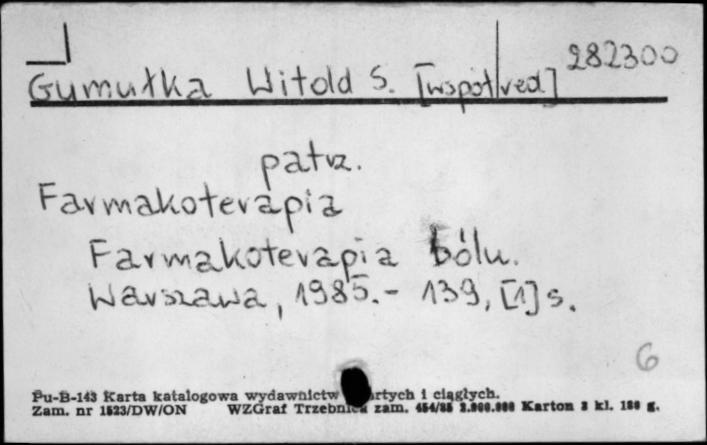 282300
Gumułka Witold S. [współred]
patrz.
Farmakoterapia
Farmakoterapia bólu.
Warszawa, 1985.- 139, [1] s.
6
Pu-B-143 Karta katalogowa wydawnictw rtych i ciągłych.
Zam. nr 1523/DW/ON WZGraf Trzebnica zam. 454/85 2.000.000 Karton 3 kl. 180 g.